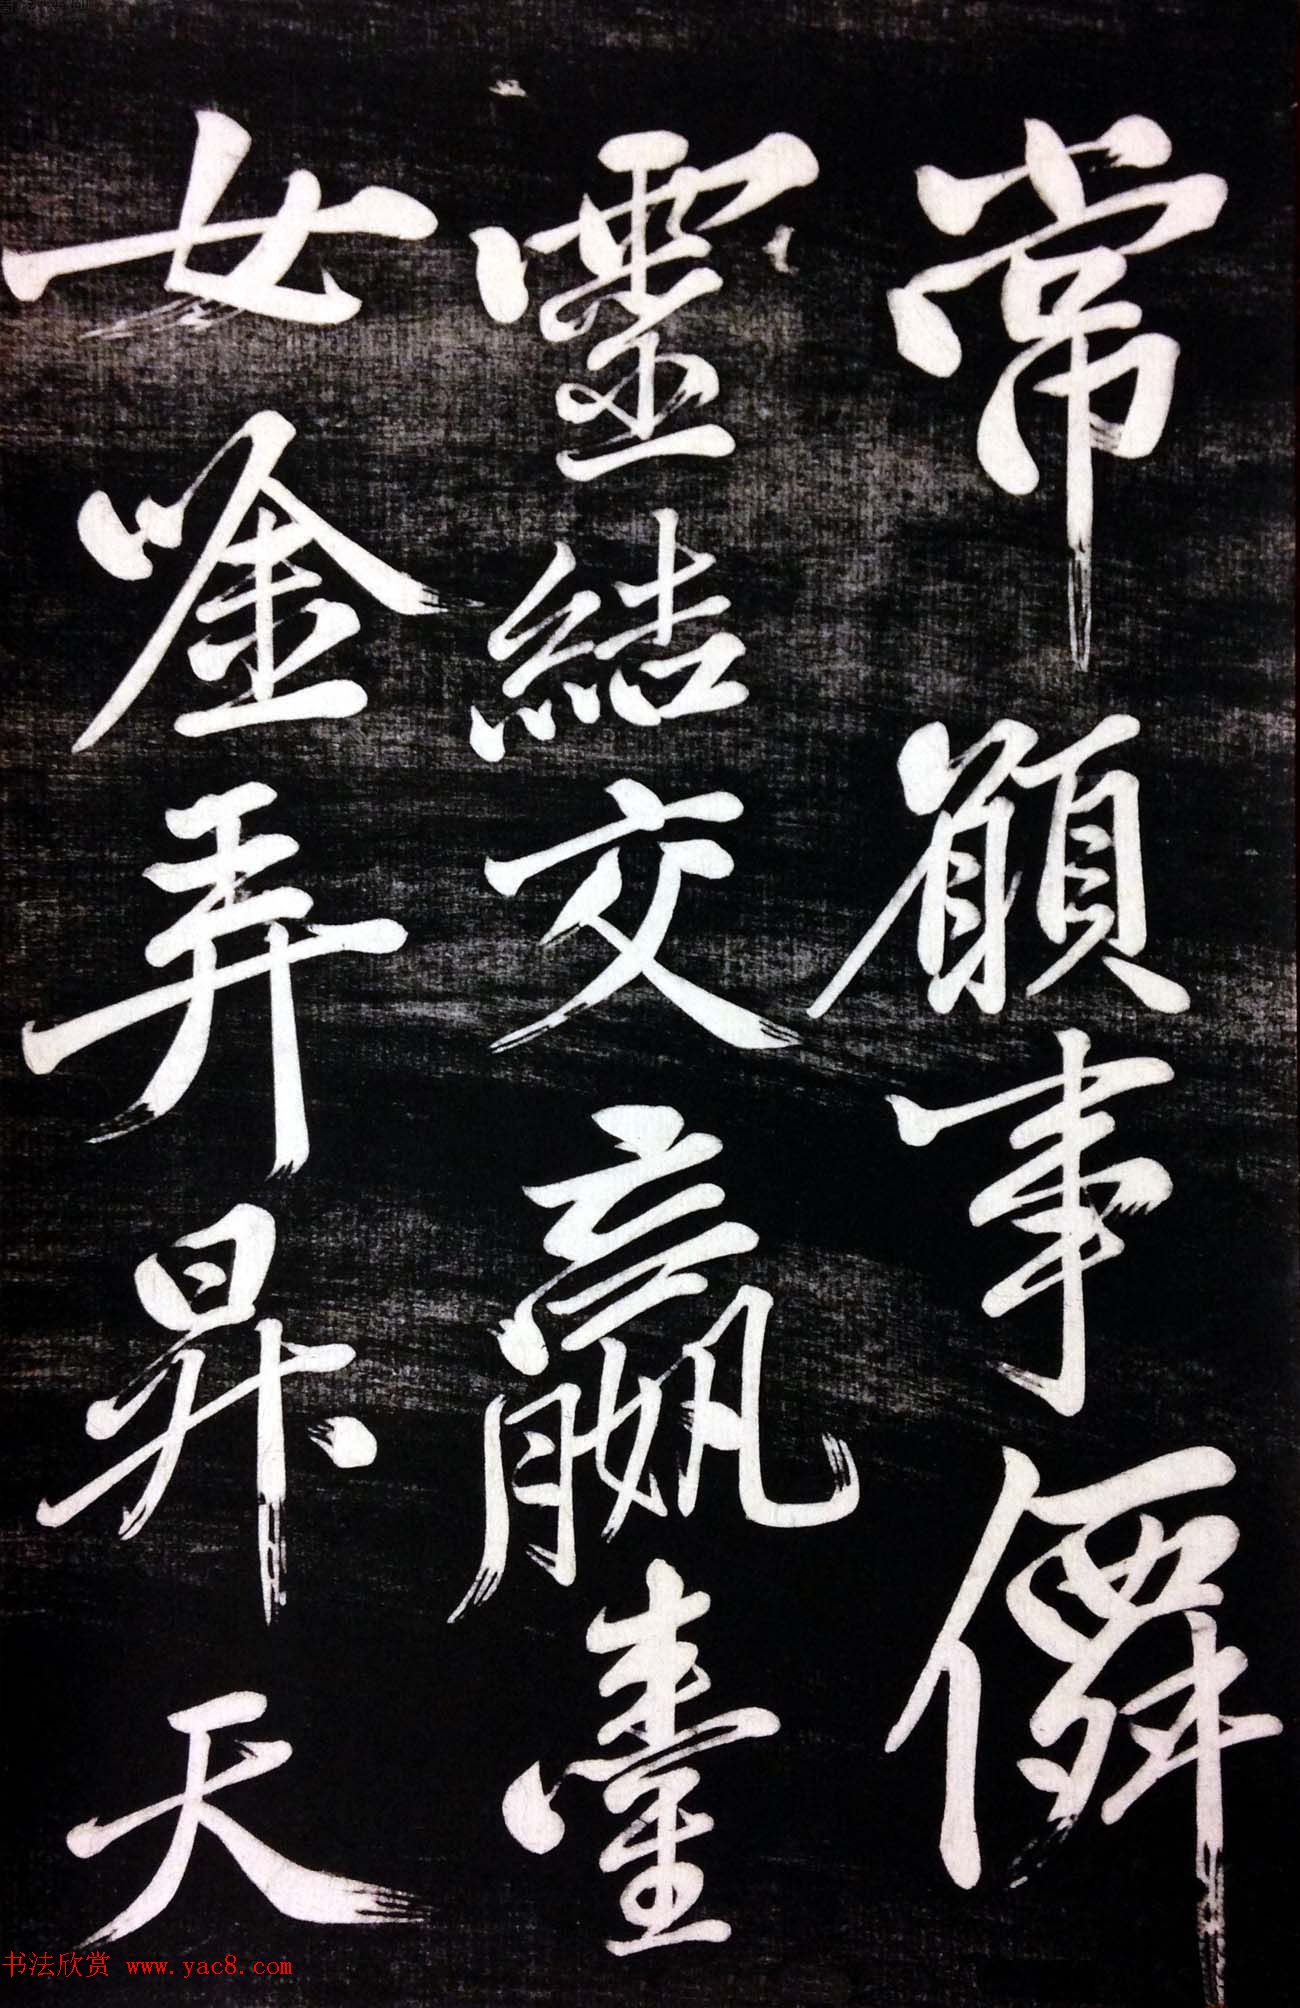 常願事僊
靈結交嬴臺
女唫弄昇天
书法欣赏 www.yac8.com